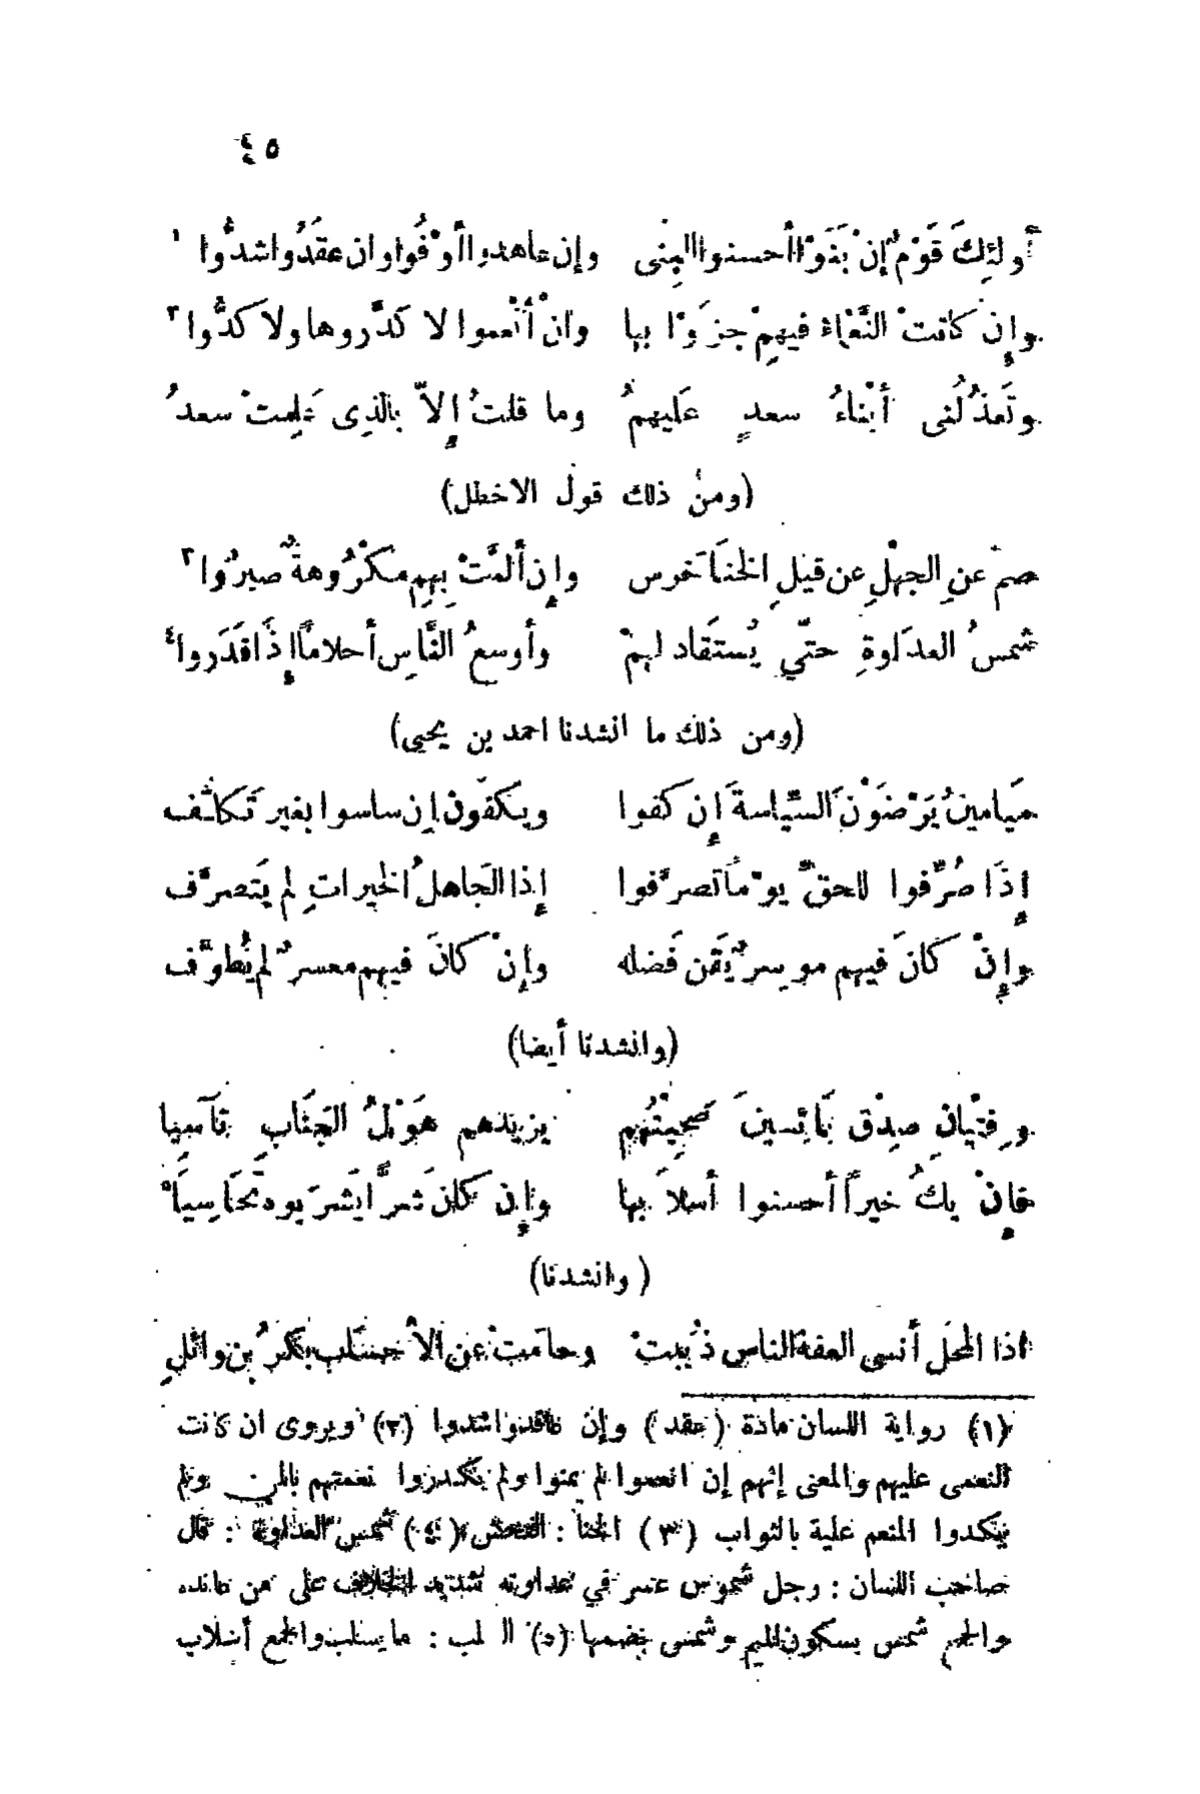 ٤٥
أولئِكَ قَوْمٌ إنْ بَنَوْا أحسنوا البِنى وإن عاهدوا أوْفُوا وان عقدُوا شدُّوا ١
وإن كانتْ النَّعْاءُ فيهِمْ جزَوْا بها وانْ أنْعموا لا كدَّروها ولا كدُّوا ٢
وتَعذُلُنى أبْناءُ سعدٍ عَليهمُ وما قلتُ إلاّ بالذِى عَلِمتْ سعدُ
(ومن ذلك قول الاخطل)
صمّ عنِ الجهْلِ عن قيلِ الخنَا خرس وإن ألمَّتْ بِهِم مكْرُوهةٌ صبرُوا ٣
شمسُ العدَاوةِ حتّى يُستَقاد لهمْ وأوسعُ النَّاسِ أحلاماً إذَا قَدَروا ٤
(ومن ذلك ما انشدنا احمد بن يحيى)
مَيامينُ يَرْضَوْنَ السِّياسةَ إن كفوا ويكفون إن ساسوا بغير تَكلُّف
إذَا صُرِّفوا للحقِّ يوْماً تصرَّفوا إذا الجَاهلُ الخيراتِ لم يَتصرَّف
وإنْ كانَ فيهم موسِرٌ يَقن فَضله وإنْ كانَ فيهم معسرٌ لم يُطوَّف
(وانشدنا أيضا)
وفِتْيانِ صِدْق بَائِسينَ صَحِبْتُهُم يزيدهم هَوْلُ الجَنَابِ تآسِيا
فإنْ يكُ خيراً أحسنوا أسلاَبها وإن كان شرًّا بَشرَبودتَحَاسِيَا
(وانشدنا)
اذا المحَل أنسى العفةَ الناس ذبّبتْ وحامَتْ عن الأحسَاب بكْرُ بن وائلِ
(١) رواية اللسان مادة (عقد) وإن عاقدوا شدوا (٢) ويروى ان كانت
النعمى عليهم والمعنى إنهم إن انعموا لم يمنوا ولم يكدروا نعمتهم بالمن ولم
يكدوا المنعم علية بالثواب (٣) الخنا : الفحش (٤) شمس العداوة : قال
صاحب اللسان : رجل شموس عسر في عداوته شديد الخلاف على من عانده
والجمع شمس بسكون الميم وشمس بضمها (٥) السلب : ما يسلب والجمع أسلاب